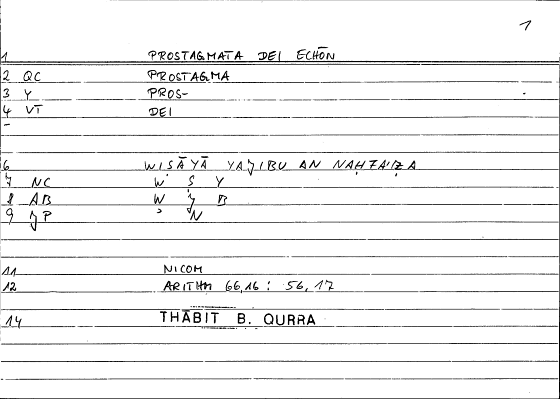 1
1 PROSTAGMATA DEI ECHŌN
2 QC PROSTAGMA
3 Y PROS-
4 VT DEI
-
6 WIṢĀYĀ YAJIBU AN NAḤFAẒA
7 NC W Ṣ Y
8 AB W J B
9 JP ʾ N
11 NICOM
12 ARITHM 66,16 : 56,17
14 THĀBIT B. QURRA